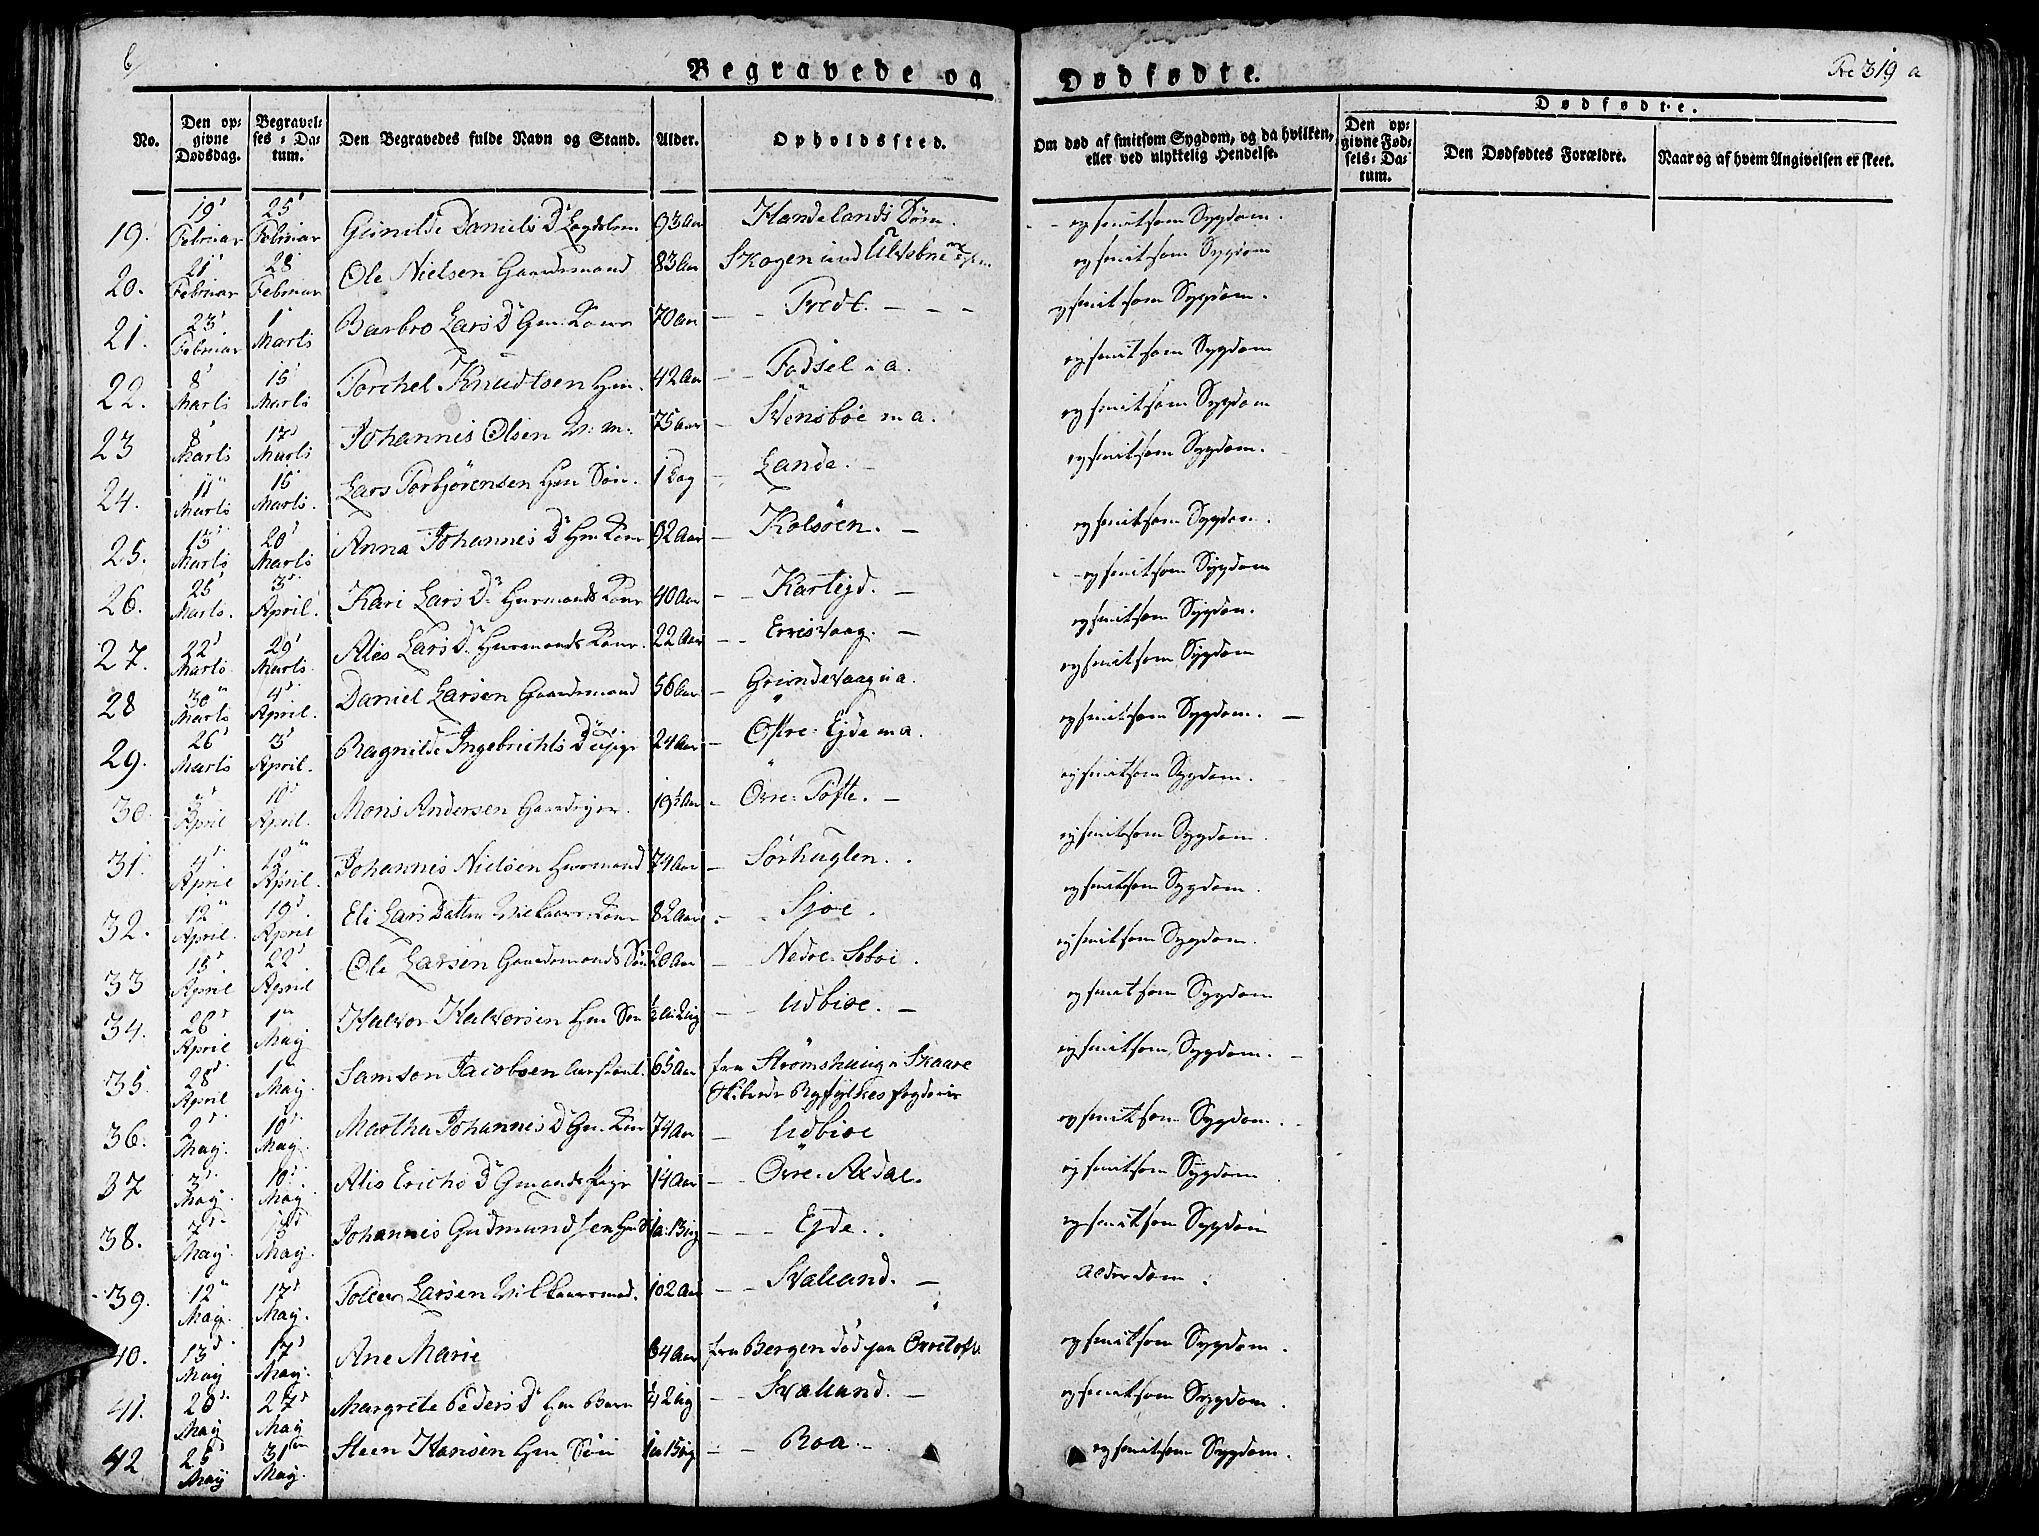 Begravede og Dødfødte.
319 a
Dødfødte.
No. Den opgivne Dødsdag. Begravelses-Datum. Den Begravedes fulde Navn og Stand. Alder. Opholdssted. Om død af smitsom Sygdom, og da hvilken, eller ved ulykkelig Hendelse. Den opgivne Fødsels-Datum. Den Dødfødtes Forældre. Naar og af hvem Angivelsen er skeet.
19. 19d Februar 25d Februar Daniels D. 93 Aar Handelands ej smitsom Sygdom.
20. 21d Februar 28d Februar Ole Nielsen Gaardmand 83 Aar Skogen ej smitsom Sygdom
21. 23d Februar 1d Marts Barbro Lars D. Gm. Kone 70 Aar – – Tredt. – – – ej smitsom Sygdom.
22. 8d Marts 15d Marts Torchel Knudtsen Hm. 42 Aar – – a. ej smitsom Sygdom
23 8d Marts 17d Marts Johannis Olsen 75 Aar – Svensbøe m a. ej smitsom Sygdom
24. 11 Marts 16 Marts Lars Torbjørensen Hm Søn. 1 Dag – Lande. – ej smitsom Sygdom.
25. 13d Marts 20d Marts Anna Johannes D. Hm. Kone 92 Aar – Kolsøen. – ej smitsom Sygdom.
26. 25d Marts. 3d April. Kari Lars D. Huusmands Kone 40 Aar – – Karteijd. – ej smitsom Sygdom
27. 22d Marts 29d Marts. Alis Lars D. Huusmands Kone. 22 Aar – – Ervisvaag. – ej smitsom Sygdom.
28 30 Marts 4d April. Daniel Larsen Gaardmand 56 Aar – Grindevaag a. ej smitsom Sygdom
29. 26d Marts 3d April. Ragnilde Ingebrichts D. Pige 24 Aar – Østre Ejde m a. ej smitsom Sygdom. –
30. April 10d April. Mons Andersen 19½ Aar – Øvre Tøfte. – ej smitsom Sygdom.
31. 4d April 12 April. Johannis Nielsen Huusmand 74 Aar – Sørhuglen. ej smitsom Sygdom.
32. 12 April. 19d April Eli Lars Datter Kone 82 Aar – – Sjoe. ej smitsom Sygdom.
33 15d April 22d April Ole Larsen Gaardmands Søn 20 Aar – Nedre Seboe. ej smitsom Sygdom.
34. 26d April 1 Maij Halvor Halvorsen Hm Søn – – Udbioe. – ej smitsom Sygdom
35. 28d April 1 Maij. Samson Jacobsen 65 Aar fra Strømshaug Skaare Skibrede Ryfylkes fogderie ej smitsom Sygdom. –
36. 2d Maij. 10d Maij. Martha Johannes D. Gm. Kone 74 Aar – Udbioe ej smitsom Sygdom.
37 3d Maij. 10d Maij. Alis Erichs D. Gmands Pige 14 Aar – – Øvre Axdal. ej smitsom Sygdom
38. 7d Maij. Maij. Johannis Gudmundsen – – – Ejde. ej smitsom Sygdom
39. 12 Maij. 17d Maij. Larsen 102 Aar – – Svaland. – Alderdom.
40. 13d Maij 17d Maij. Ane Marie 64 Aar fra Bergen død paa ej smitsom Sygdom.
41. 20d Maij 27d Maij Margrete Peders D. Hm Barn – – Svaland. – ej smitsom Sygdom.
42 25d Maij 31 Maij. Steen Hansen Hm Søn – – Roa. – ej smitsom Sygdom.